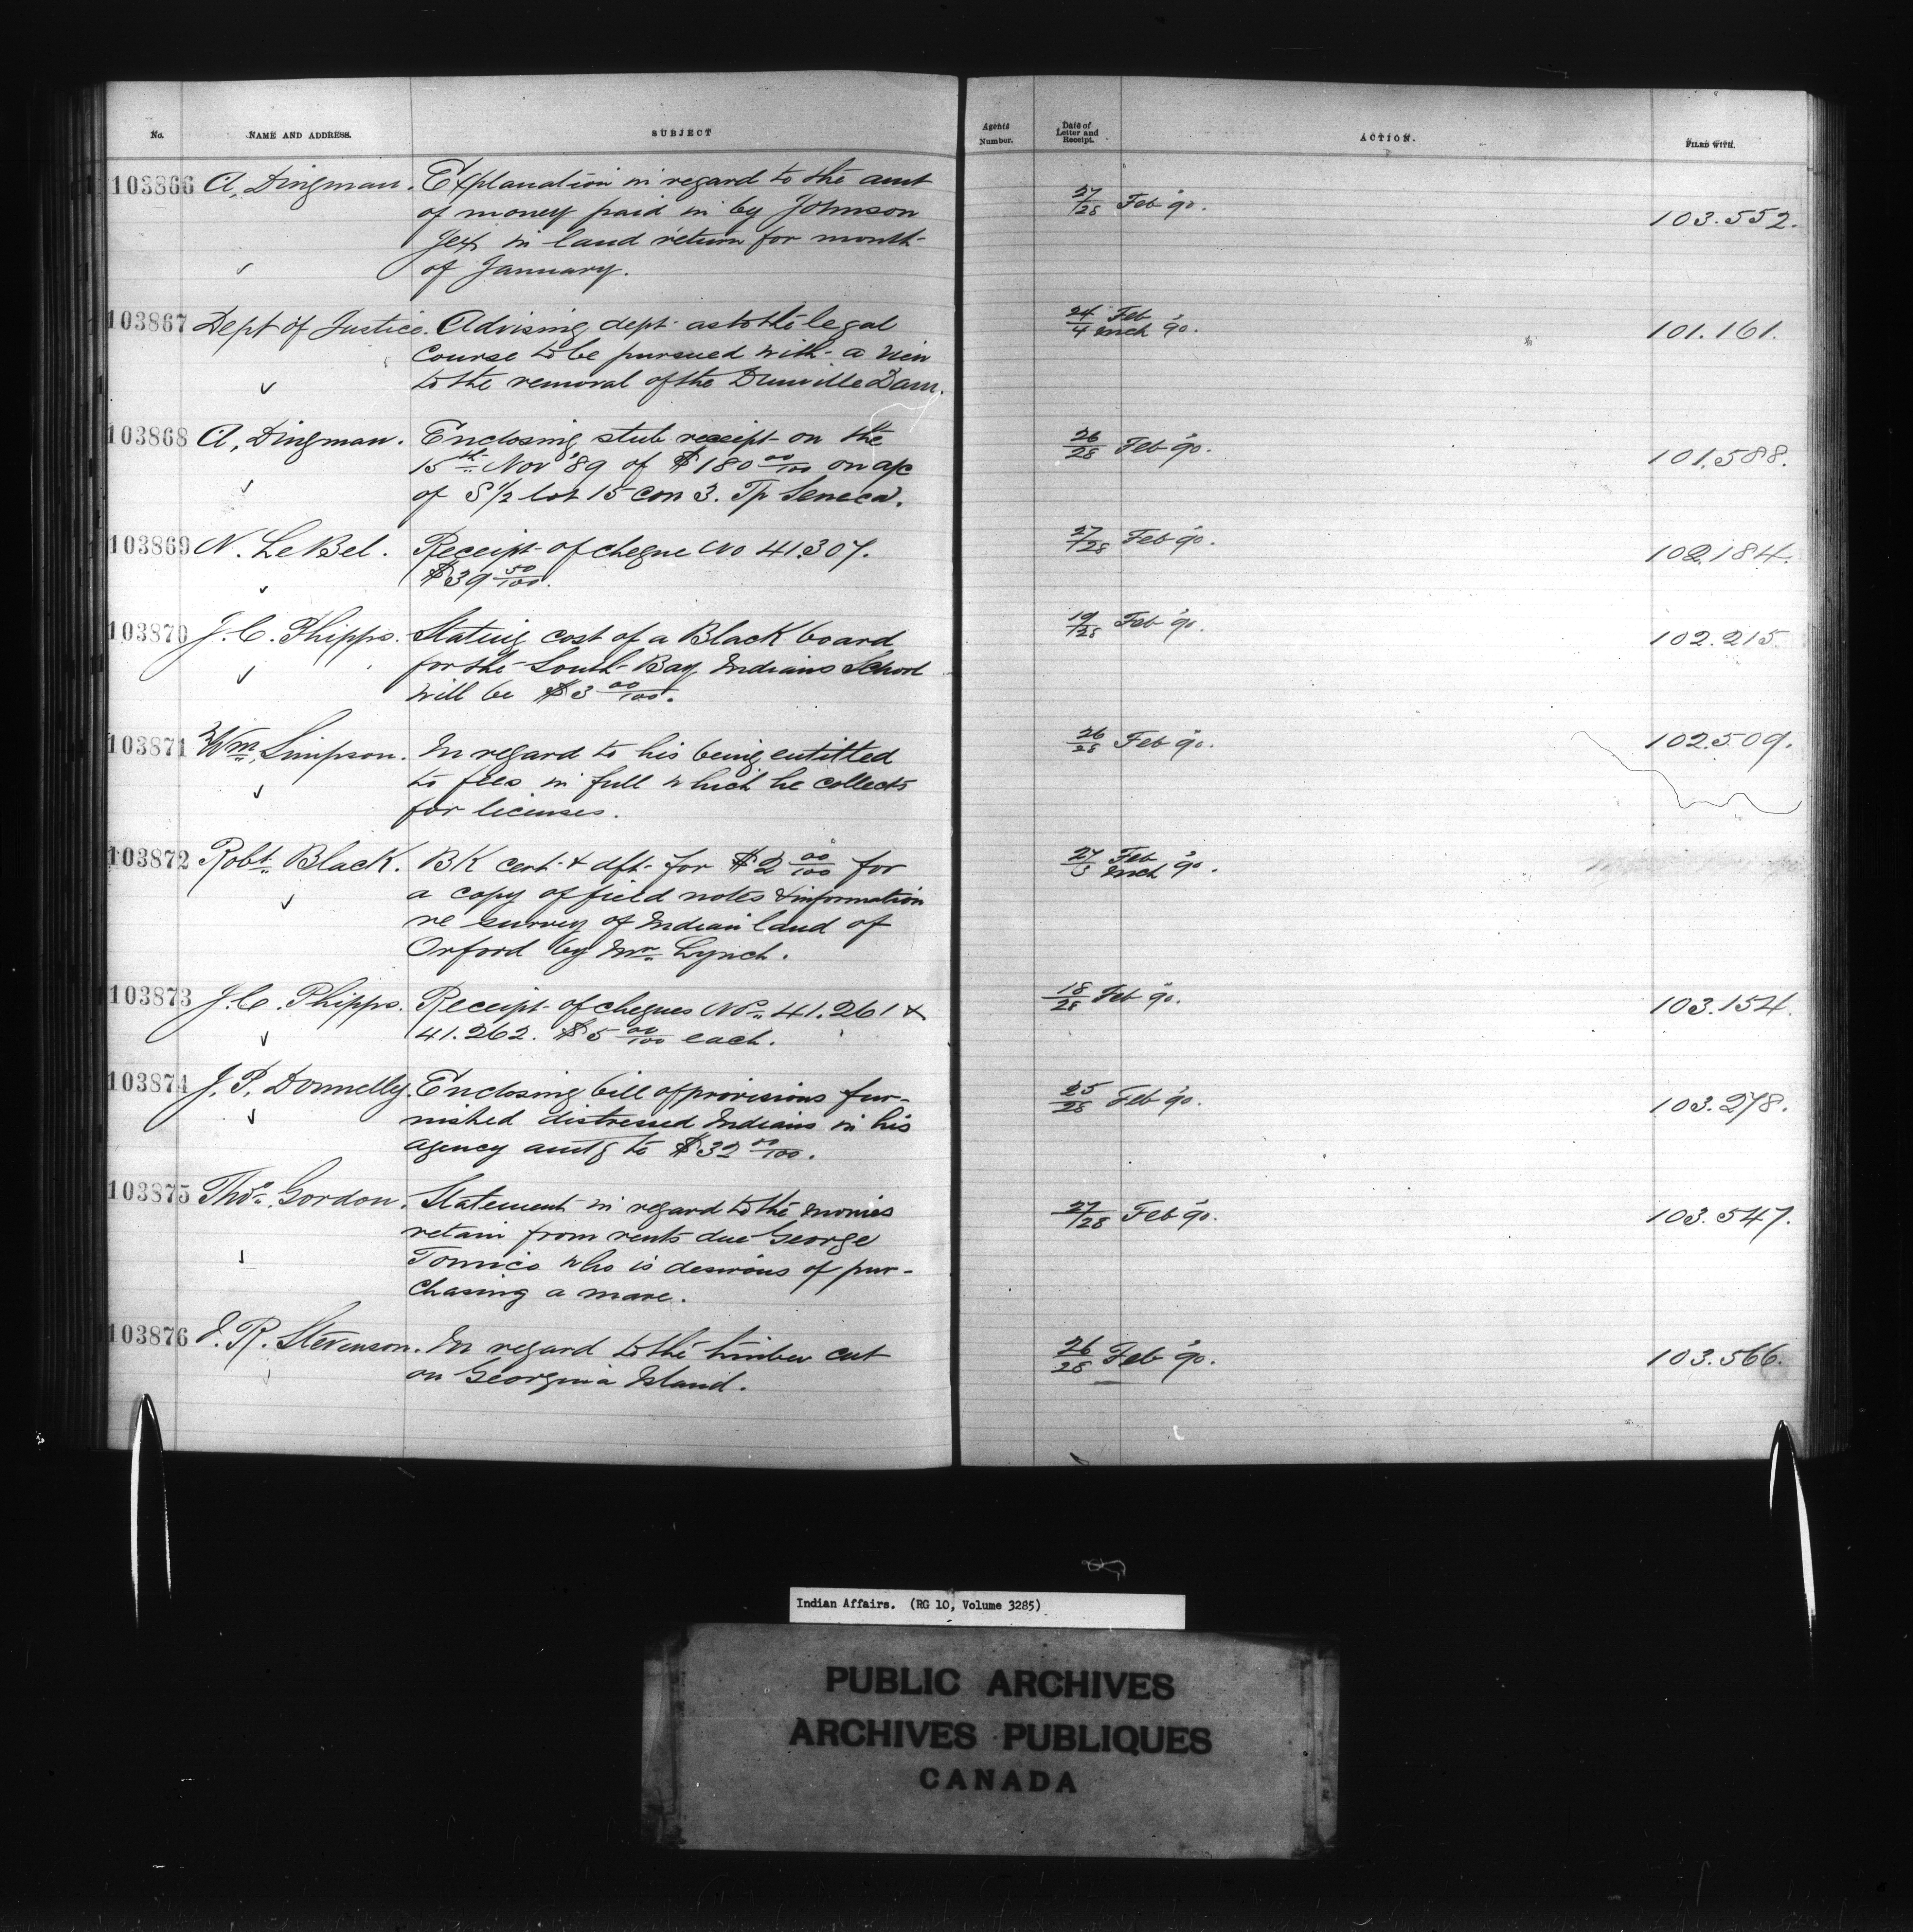 No. NAME AND ADDRESS. SUBJECT Agents Number. Date of Letter and Receipt. ACTION. FILED WITH.
103866 A. Dingman. Explanation in regard to the amt 27/28 Feb '90. 103.552.
of money paid in by Johnson
in land return for month
of January.
103867 Dept of Justice. Advising dept as to the legal 24/4 Feb Mch '90. 101.161.
course to be pursued with a view
to the removal of the Dunville Dam.
103868 A. Dingman. Enclosing stub receipt on the 26/28 Feb '90. 101.588.
15th Nov '89 of $180 00/100 on a/c
of S 1/2 lot 15 con 3. Tp Seneca.
103869 N. LeBel. Receipt of cheque No 41.307. 27/28 Feb '90. 102.184.
$39 50/100.
103870 J.C. Phipps. Stating cost of a Black board 19/28 Feb '90. 102.215
for the South Bay Indians School
will be $3 00/100.
103871 Wm Simpson. In regard to his being entitled 26/28 Feb '90. 102.509.
to fees in full which he collects
for licenses.
103872 Robt Black. BK cert & dft for $2 00/100 for 27/3 Feb Mch '90.
a copy of field notes & information
re survey of Indian land of
Orford by Mr Lynch.
103873 J.C. Phipps. Receipt of cheques Nos 41.261 & 18/28 Feb '90. 103.154.
41.262. $5 00/100 each.
103874 J.P. Donnelly. Enclosing bill of provisions fur- 25/28 Feb '90. 103.278.
nished distressed Indians in his
agency amtg to $32 00/100.
103875 Thos Gordon. Statement in regard to the monies 27/28 Feb '90. 103.547.
retain from rents due George
Tomico who is desirous of pur-
chasing a mare.
103876 J.R. Stevenson. In regard to the timber cut 26/28 Feb '90. 103.566.
on Georgina Island.
Indian Affairs. (RG 10, Volume 3285)
PUBLIC ARCHIVES
ARCHIVES PUBLIQUES
CANADA